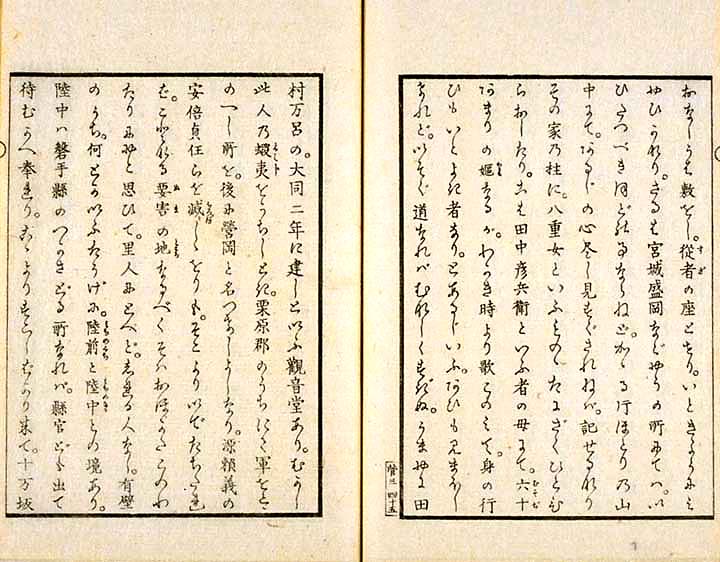 おなしうち敷をし。従者の座とせり。いときよらにみ
やひかなり。さるは宮城盛岡などやうの所にては。い
ひたつべきほどの事ならねど。かゝる行ほとりの山
中にて。あるじの心尽し見すぐされねば。記せるなり
その家乃柱に。八重女といふものゝたにざくひとひ
らおしたり。こは田中彦兵衛といふ者の母にて。六十
あまりの嫗なるが。わかき時より歌このみて。身の行
ひもいとよき者なり。とあるじいふ。あひも見まほし
けれど。いそぐ道なればむなしくすぎぬ。うまやに田
村万呂の。大同二年に建しといふ觀音堂あり。むかし
此人乃蝦夷をうちしとき。栗原郡のうちにて軍をと
の へし所を。後に營岡と名つけしよしなり。源頼義の
安倍貞任らを滅しゝをりも。そこよりいでたちたまへ
を。これる要害の地なるべくそはおほかたこのわ
たりにやと思ひて。里人にとへど。しれる人なし。有壁
のうち。何とかいふたうげに。陸前と陸中との境あり。
陸中ハ磐手縣のつかさどる所なれば。縣官ども出て
待むかへ奉れり。こゝよりすこしばかり来て。十万坂